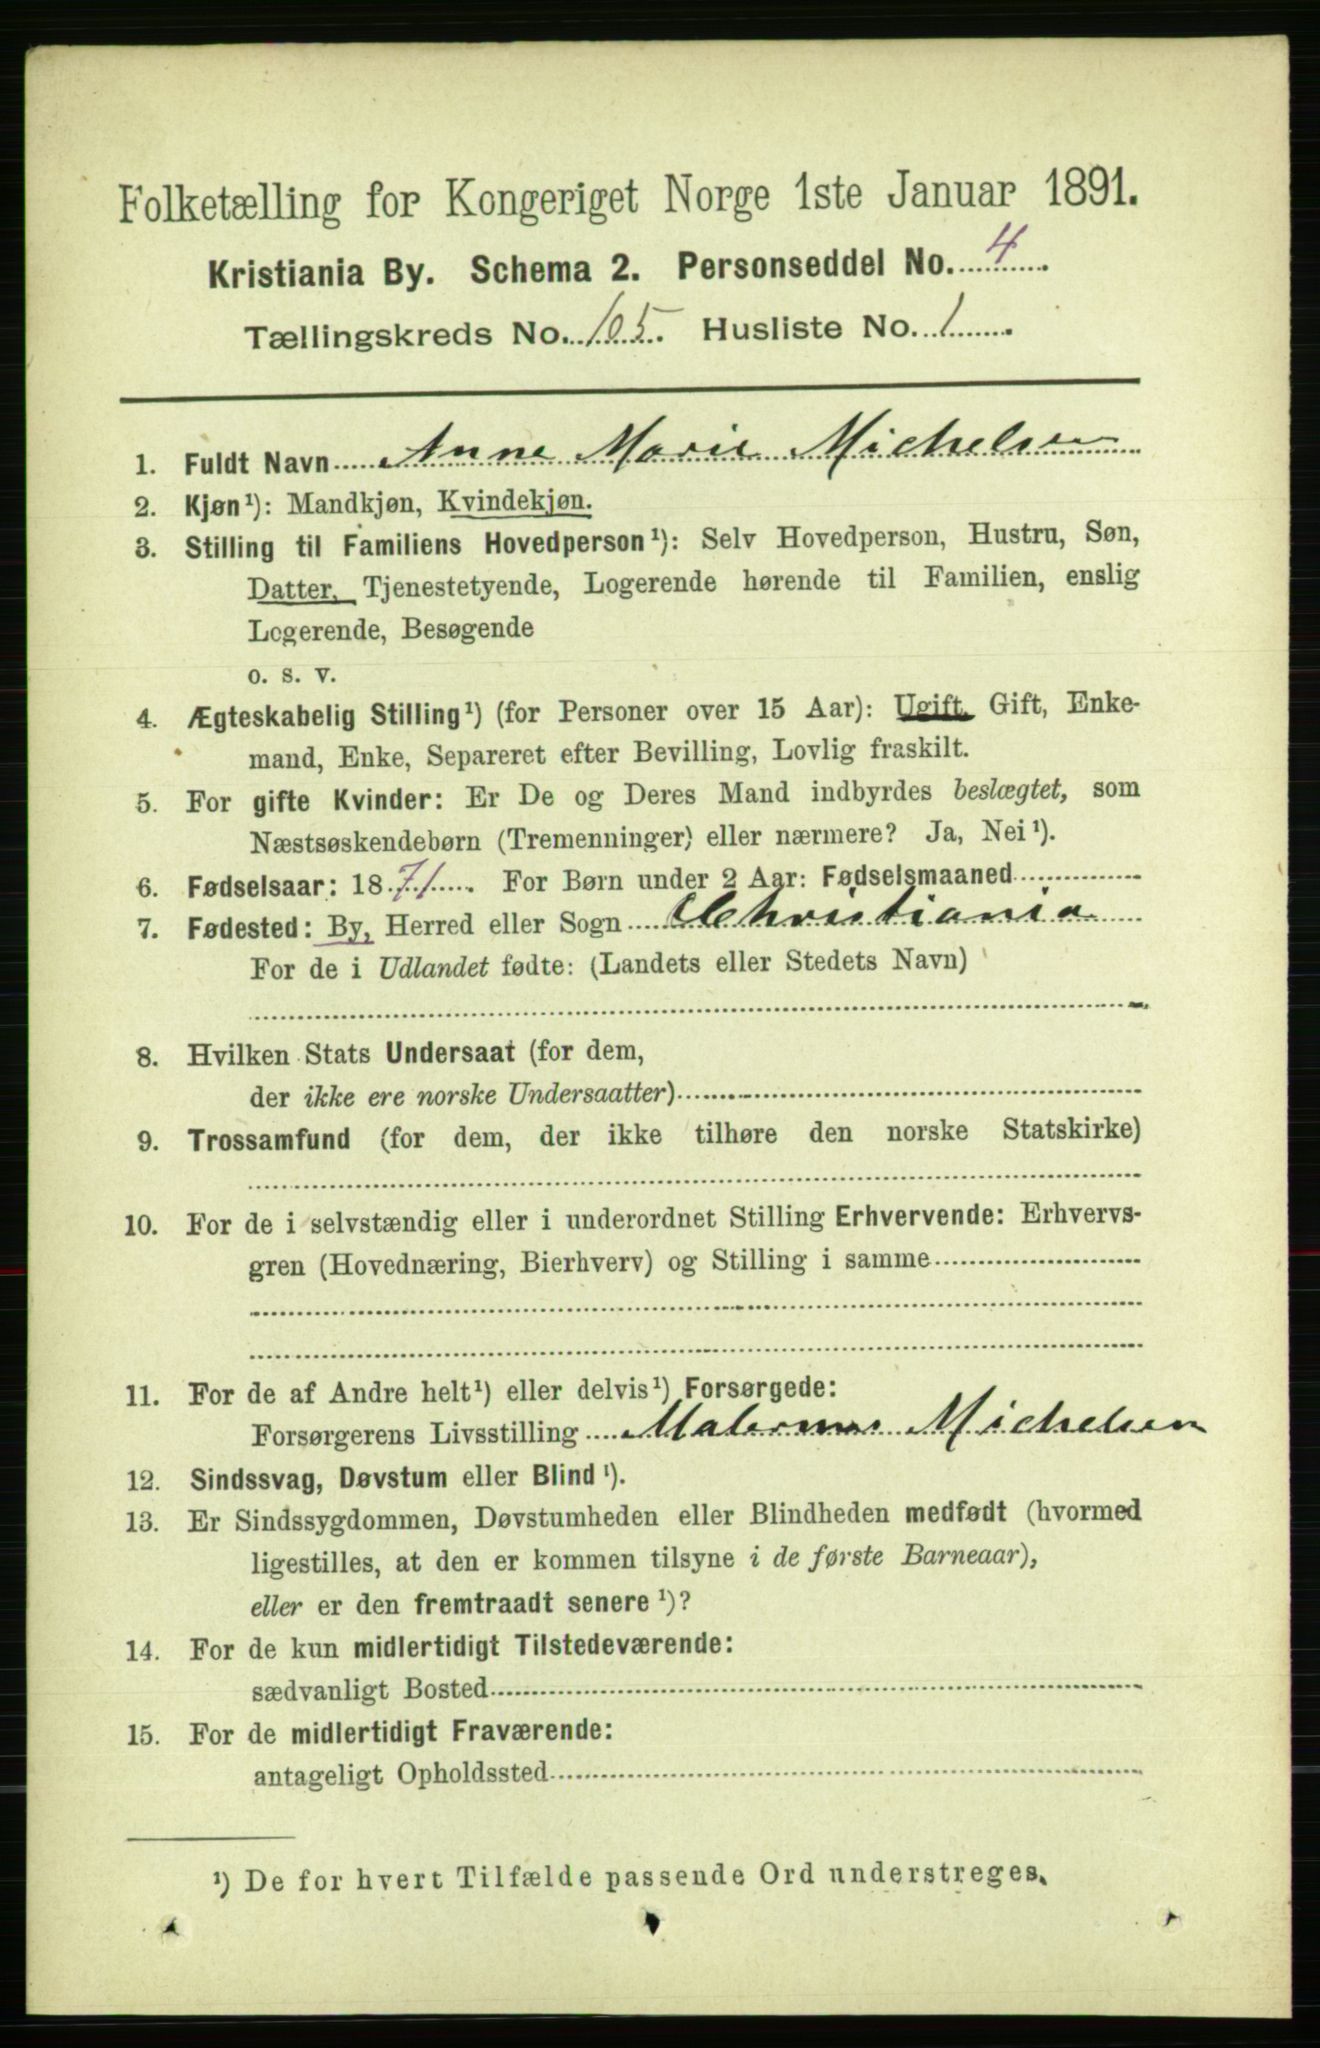 Folketælling for Kongeriget Norge 1ste Januar 1891.
Kristiania By. Schema 2. Personseddel No. 4
Tællingskreds No. 105. Husliste No. 1
1. Fuldt Navn Anne Marie Michelsen
2. Kjøn¹): Mandkjøn, Kvindekjøn.
3. Stilling til Familiens Hovedperson¹): Selv Hovedperson, Hustru, Søn,
Datter, Tjenestetyende, Logerende hørende til Familien, enslig
Logerende, Besøgende
o. s. v.
4. Ægteskabelig Stilling¹) (for Personer over 15 Aar): Ugift, Gift, Enke-
mand, Enke, Separeret efter Bevilling, Lovlig fraskilt.
5. For gifte Kvinder: Er De og Deres Mand indbyrdes beslægtet, som
Næstsøskendebørn (Tremenninger) eller nærmere? Ja, Nei¹).
6. Fødselsaar: 1871. For Børn under 2 Aar: Fødselsmaaned
7. Fødested: By, Herred eller Sogn Christiania
For de i Udlandet fødte: (Landets eller Stedets Navn)
8. Hvilken Stats Undersaat (for dem,
der ikke ere norske Undersaatter)
9. Trossamfund (for dem, der ikke tilhøre den norske Statskirke)
10. For de i selvstændig eller i underordnet Stilling Erhvervende: Erhvervs-
gren (Hovednæring, Bierhverv) og Stilling i samme
11. For de af Andre helt¹) eller delvis¹) Forsørgede:
Forsørgerens Livsstilling Michelsen
12. Sindssvag, Døvstum eller Blind¹).
13. Er Sindssygdommen, Døvstumheden eller Blindheden medfødt (hvormed
ligestilles, at den er kommen tilsyne i de første Barneaar),
eller er den fremtraadt senere¹)?
14. For de kun midlertidigt Tilstedeværende:
sædvanligt Bosted
15. For de midlertidigt Fraværende:
antageligt Opholdssted
¹) De for hvert Tilfælde passende Ord understreges.